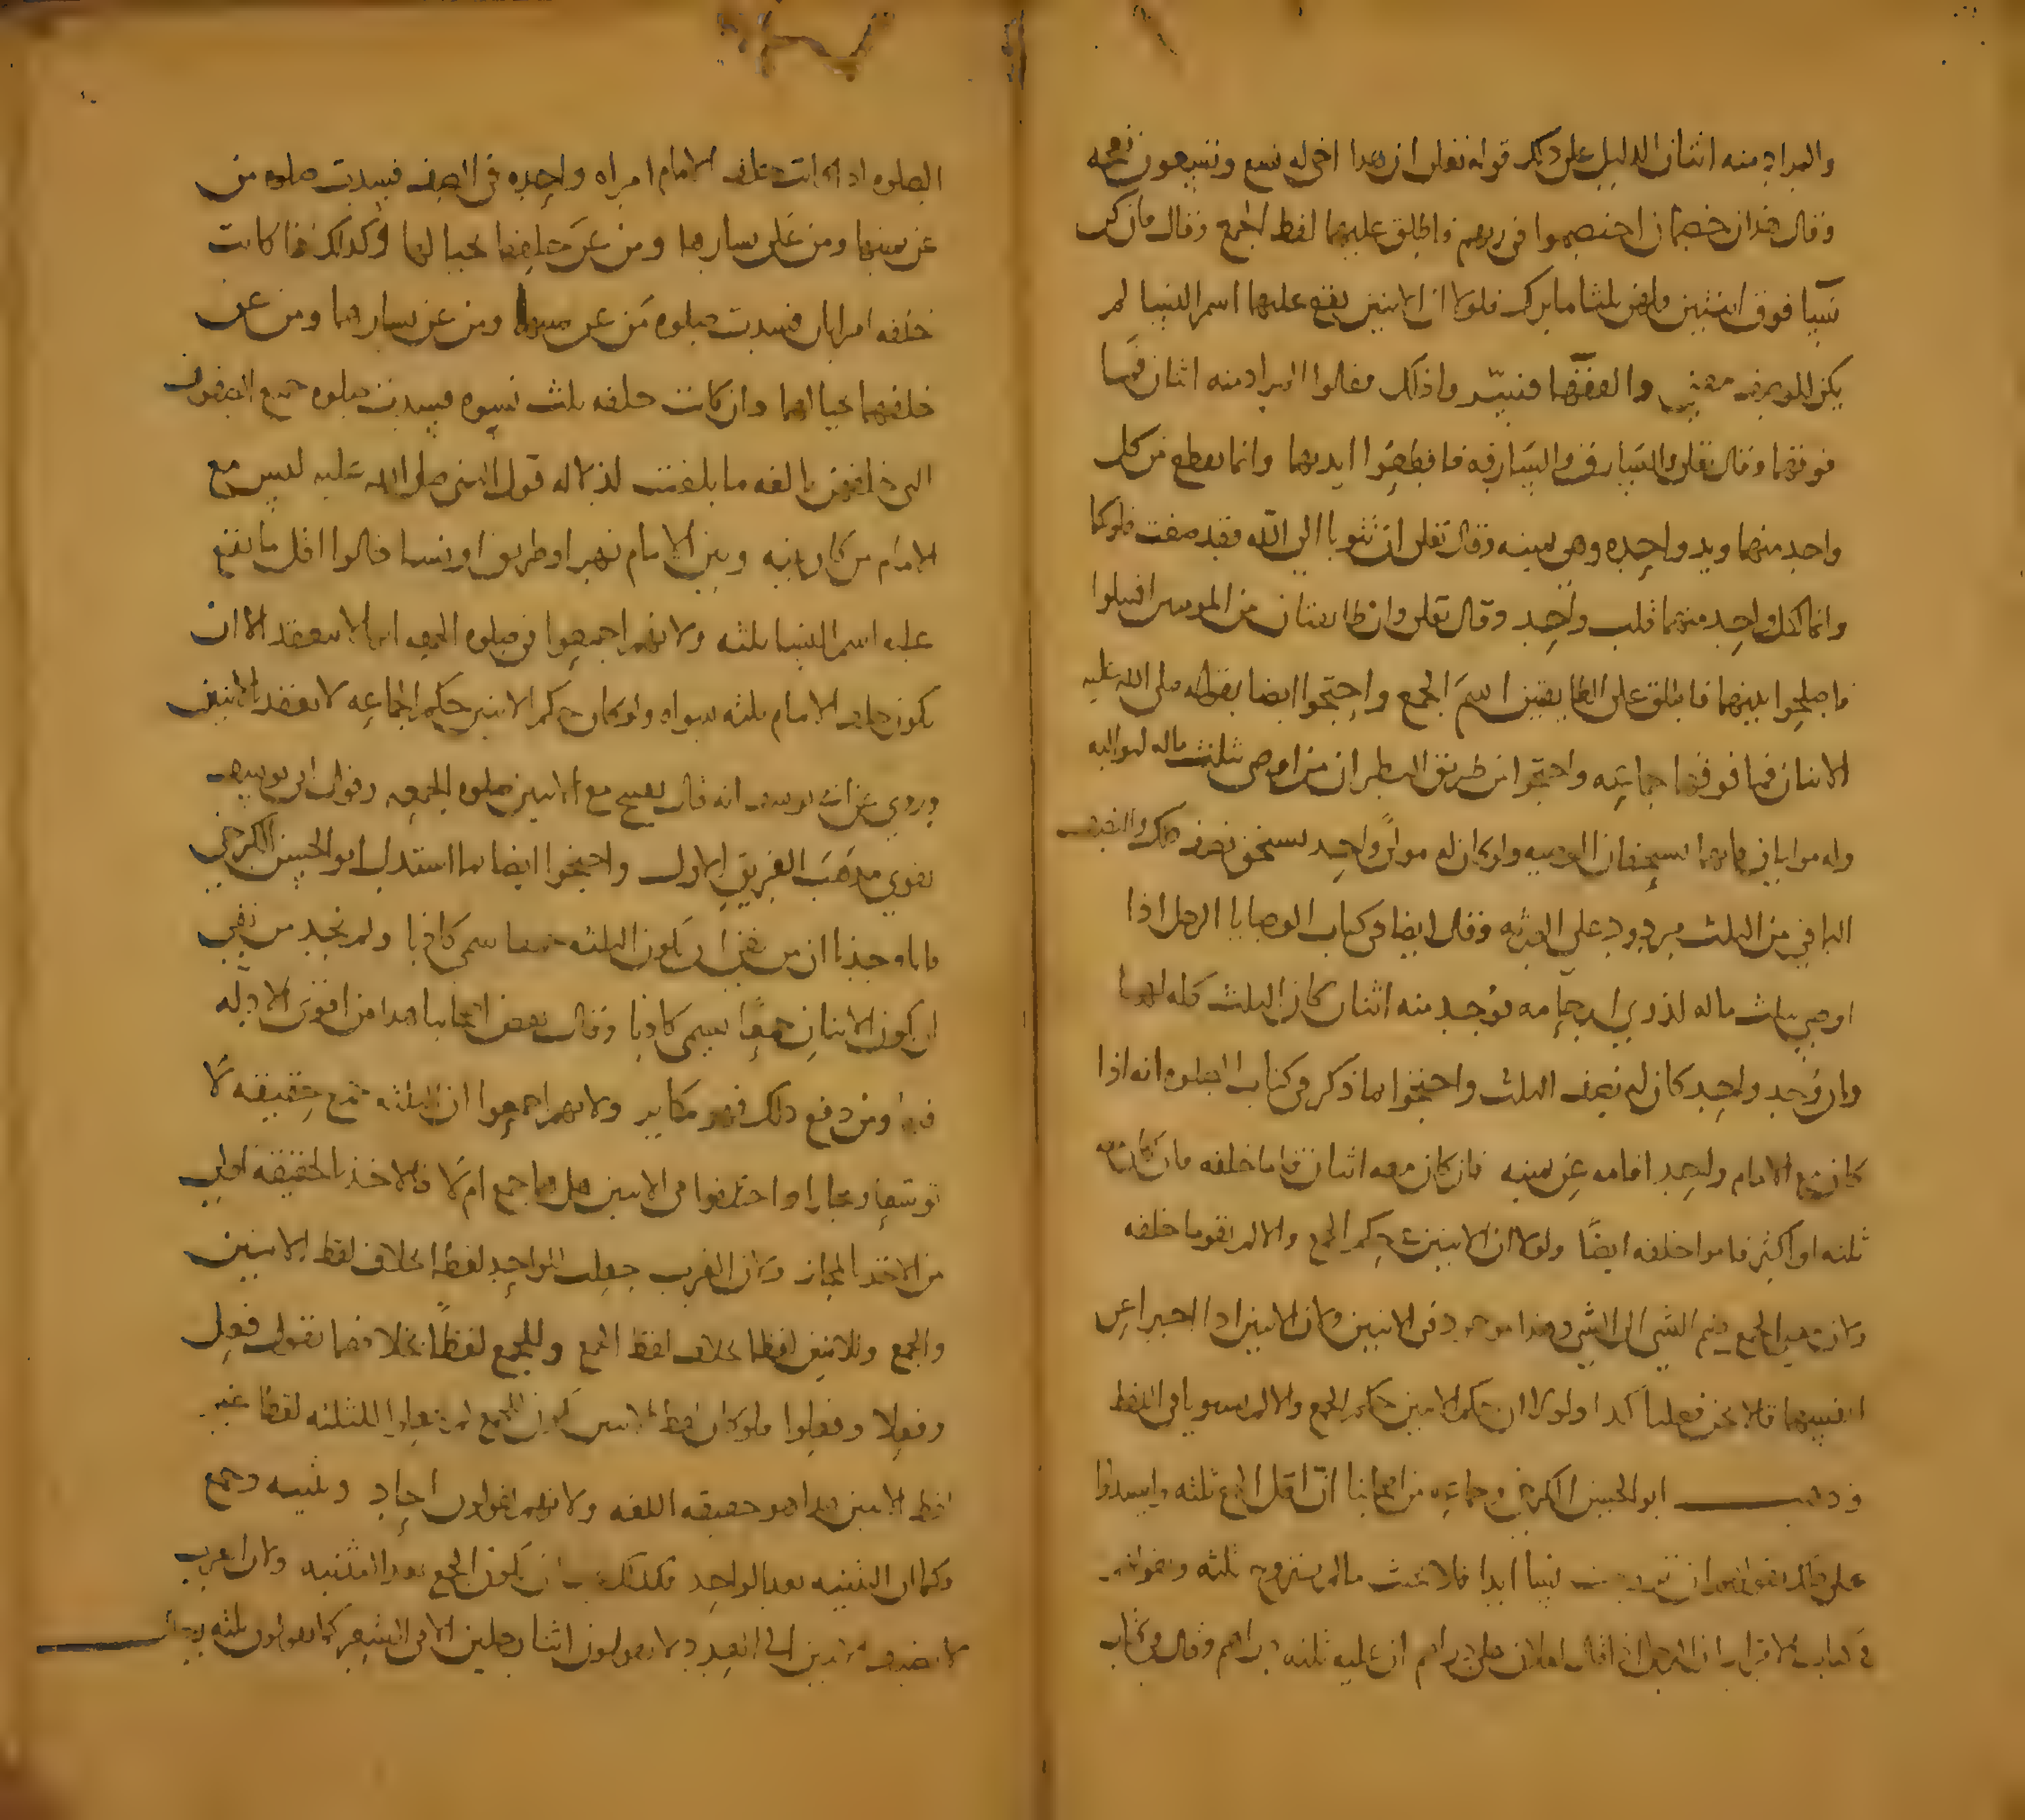 والمراد منه اثنان الدليل على ذلك قوله تعلى ان هذا اخى له تسع وتسعون نعجه
وقال هذان خصمان اختصموا فى ربهم فاطلق عليهما لفظ الجمع وقال فان كن
نسآ فوق اثنتين فلهن ثلثا ما ترك فلولا ان الاثنين يقع عليهما اسم النسا لم
يكن للو معنى والفقها واذلك فقالوا المراد منه اثنان فما
فوقهما وقال تعلى والسارق والسارقه فاقطعوا ايديهما وانما يقطع من كل
واحد منهما يد واحده وهى يمينه وقال تعلى ان تتوبا الى الله فقد صغت قلوبكما
وانما لكل واحد منهما قلب واحد وقال تعلى وان طايفتان من المومنين اقتتلوا
فاصلحوا بينهما فاطلق على الطايفتين اسم الجمع واحتجوا ايضا بقوله صلى الله عليه
الاثنان فما فوقهما جماعه واحتجوا من طريق النظر ان من اوصى بثلث ماله لمواليه
وله موليان فانهما يستحقان الوصيه ولو كان له مولىً واحد يستحق نصف ذلك والنصف
الباقي من الثلث مردود على الورثه وقال ايضا فى كتاب الوصايا الرجل اذا
اوصى بثلث ماله لذوي ارحامه فوُجد منه اثنان كان الثلث كله لهما
وان وُجد واحد كان له نصف الثلث واحتجوا بما ذكر فى كتاب الصلوه انه اذا
كان مع الامام واحد اقامه عن يمينه فان كان معه اثنان قاما خلفه فان كان معه
ثلثه او اكثر قاموا خلفه ايضًا ولولا ان الاثنين حكم الجمع والا لم يقوما خلفه
ولان معنى الجمع ضم الشي الى الشي وهذا موجود فى الاثنين ولان الاثنين اذا اخبرا عن
انفسهما قالا نحن فعلنا كذا ولولا ان حكم الاثنين حكم الجمع والا لم يستويا فى اللفظ
وذهب ابو الحسن الكرخى وجماعه من اصحابنا ان اقل الجمع ثلثه واستدلوا
على ذلك نسا ابدا فلا يحنث ما لم يتزوج ثلثه وبقوله
فى كتاب الاقرار ان الرجل اذا قال لفلان على دراهم ان عليه ثلثه دراهم وقال فى كتاب
الصلوه اذا كانت خلف الامام امراه واحده فى الصف فسدت صلوه من
عن يمينها ومن على يسارها ومن على خلفها بحيالها وكذلك اذا كانت
خلفه امراتان فسدت صلوه من عن يمينهما ومن عن يسارهما ومن عن
خلفهما بحيالهما وان كانت خلفه ثلث نسوه فسدت صلوه جميع الصفوف
التى خلفهن بالغه ما بلغت لدلاله قول النبى صلى الله عليه ليس مع
الامام من كان بينه وبين الامام نهر او طريق او نسا قالوا اقل ما يقع
عليه اسم النسا ثلثه ولانهم اجمعوا فى صلوه الجمعه انها لا تنعقد الا ان
يكون خلف الامام ثلثه سواه ولو كان حكم الاثنين حكم الجماعه لانعقد بالاثنين
وروى عن ابى يوسف انه قال يصح مع الاثنين صلوه الجمعه وقول ابى يوسف
يقوى مذهب الفريق الاول واحتجوا ايضا بما استدل ابو الحسن الكرخى
فانا وجدنا ان من نفى ان يكون الثلثه جمعا سمى كاذبا ولم نجد من نفى
ان يكون الاثنان جمعًا يسمى كاذبا وقال بعض اصحابنا هذا من اقوى الادله
فيه ومن دفع ذلك فهو مكابر ولانهم اجمعوا ان الثلثه جمع حقيقه لا
توسعا ومجازا واختلفوا فى الاثنين هل هما جمع ام لا فالاخذ بالحقيقه اولى
من الاخذ بالمجاز ولان العرب جعلت للواحد لفظا بخلاف لفظ الاثنين
والجمع وللاثنين لفظا بخلاف لفظ الجمع وللجمع لفظًا بخلافهما تقول فعل
وفعلا وفعلوا فلو كان لفظ الاثنين كلفظ الجمع لم يجعلوا للثلثه لفظا غير
لفظ الاثنين هذا هو حقيقه اللغه ولانهم يقولون احاد وتثنيه وجمع
وكما ان التثنيه بعد الواحد فكذلك يجب ان يكون الجمع بعد التثنيه ولان العرب
لا تضيف الاثنين الى العدد لا يقولون اثنا رجلين الا فى الشعر كما يقولون ثلثه رجال